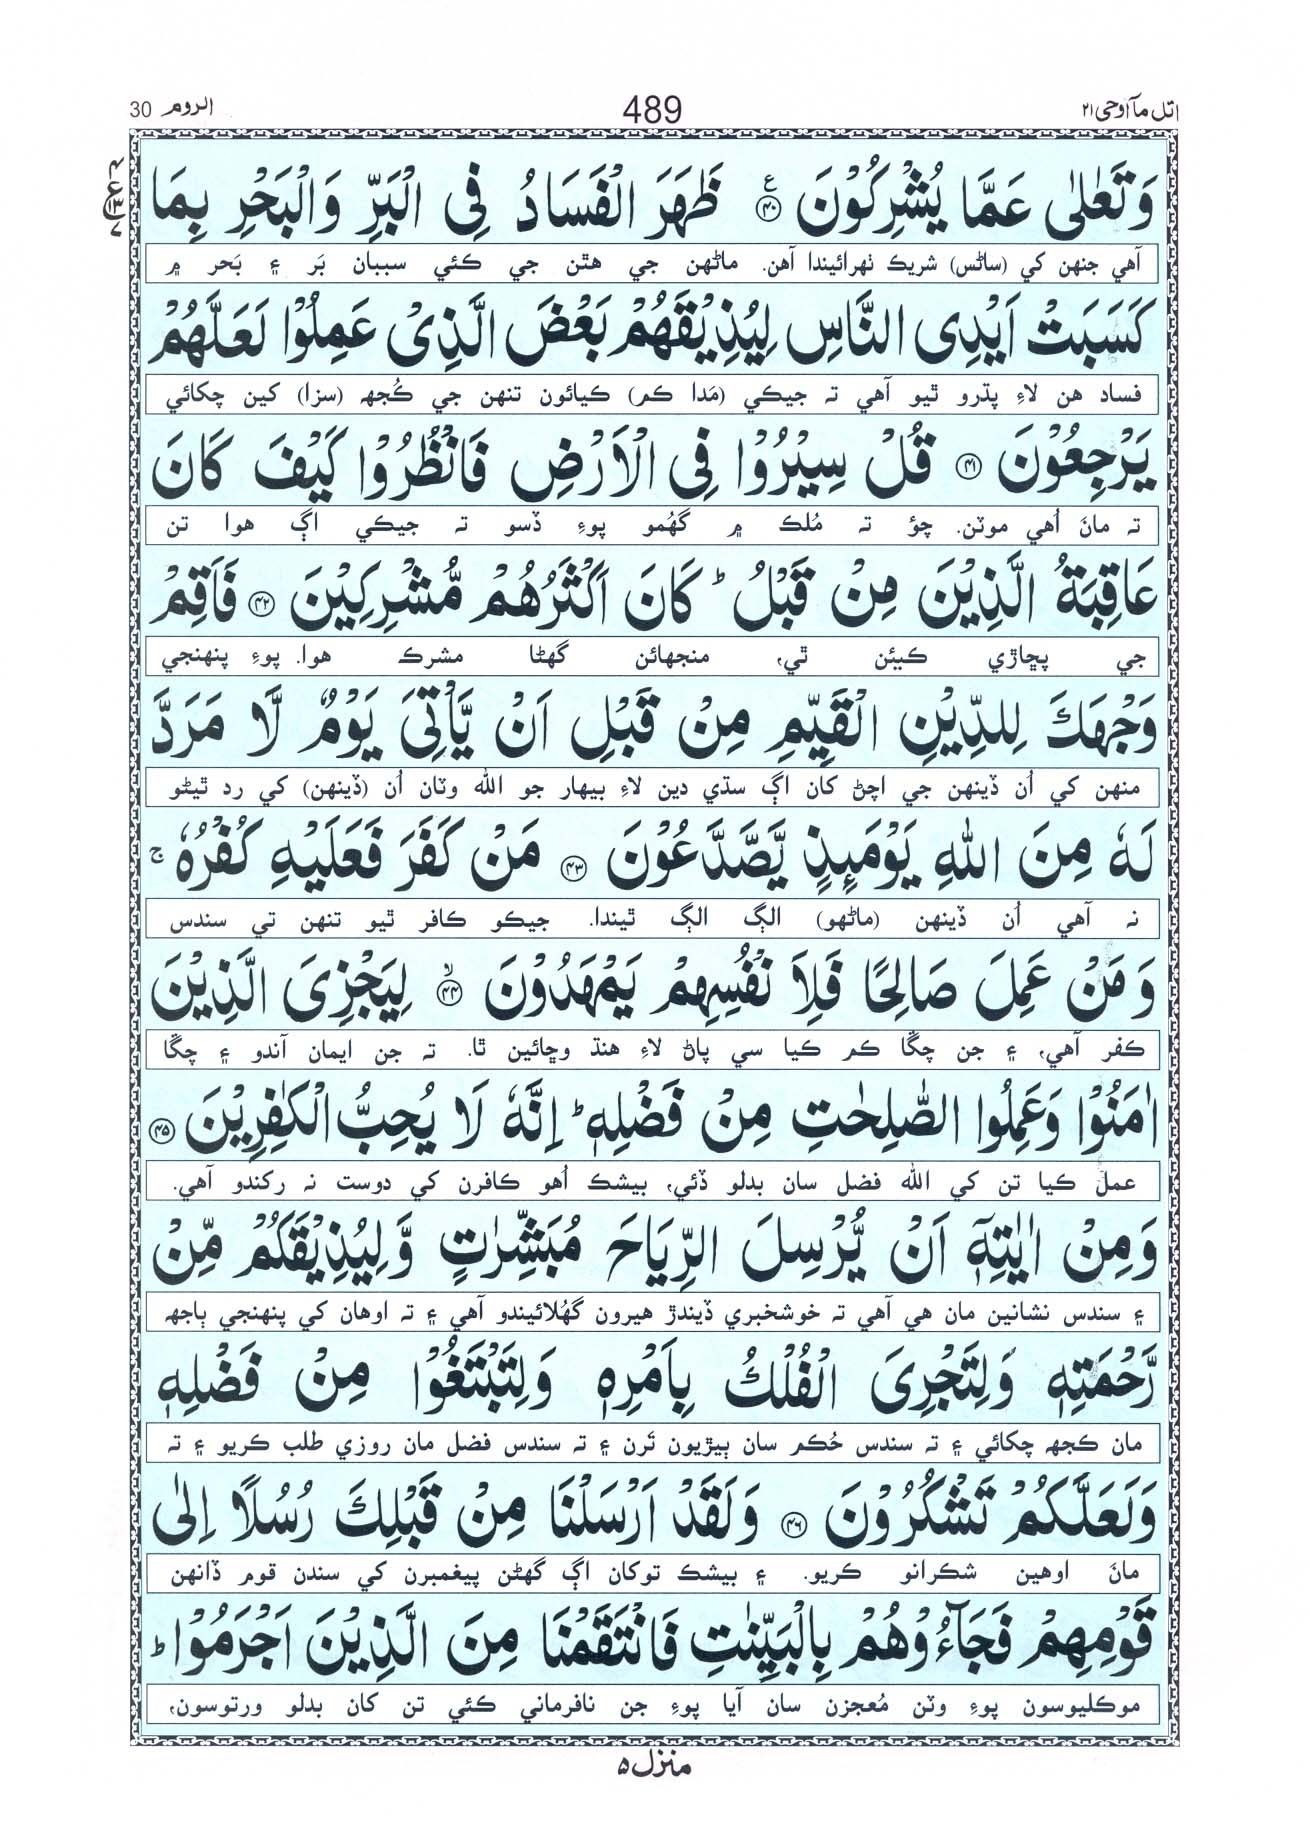 اتل مآ اوحی ۲۱ 489 الروم 30
وَتَعٰلٰى عَمَّا يُشْرِكُوْنَ ۴۰ ع ظَهَرَ الْفَسَادُ فِى الْبَرِّ وَالْبَحْرِ بِمَا
آهي جنهن کي (ساڻس) شريڪ ٺهرائيندا آهن. ماڻهن جي هٿن جي ڪئي سببان بَر ۽ بَحر ۾
كَسَبَتْ اَيْدِى النَّاسِ لِيُذِيْقَهُمْ بَعْضَ الَّذِىْ عَمِلُوْا لَعَلَّهُمْ
فساد هن لاءِ پڌرو ٿيو آهي تہ جيڪي (مَدا ڪم) ڪيائون تنهن جي ڪُجھہ (سزا) کين چکائي
يَرْجِعُوْنَ ۴۱ قُلْ سِيْرُوْا فِى الْاَرْضِ فَانْظُرُوْا كَيْفَ كَانَ
تہ مانَ اُهي موٽن. چؤ تہ مُلڪ ۾ گهُمو پوءِ ڏسو تہ جيڪي اڳ هوا تن
عَاقِبَةُ الَّذِيْنَ مِنْ قَبْلُ ؕ كَانَ اَكْثَرُهُمْ مُّشْرِكِيْنَ ۴۲ فَاَقِمْ
جي پڇاڙي ڪيئن ٿي، منجهائن گهڻا مشرڪ هوا. پوءِ پنهنجي
وَجْهَكَ لِلدِّيْنِ الْقَيِّمِ مِنْ قَبْلِ اَنْ يَّاْتِىَ يَوْمٌ لَّا مَرَدَّ
منهن کي اُن ڏينهن جي اچڻ کان اڳ سڌي دين لاءِ بيهار جو الله وٽان اُن (ڏينهن) کي رد ٿيڻو
لَهٗ مِنَ اللّٰهِ يَوْمَئِذٍ يَّصَّدَّعُوْنَ ۴۳ مَنْ كَفَرَ فَعَلَيْهِ كُفْرُهٗ ۚ
نہ آهي اُن ڏينهن (ماڻهو) الڳ الڳ ٿيندا. جيڪو ڪافر ٿيو تنهن تي سندس
وَمَنْ عَمِلَ صَالِحًا فَلِاَ نْفُسِهِمْ يَمْهَدُوْنَ ۴۴ ۙ لِيَجْزِىَ الَّذِيْنَ
ڪفر آهي، ۽ جن چڱا ڪم ڪيا سي پاڻ لاءِ هنڌ وڇائين ٿا. تہ جن ايمان آندو ۽ چڱا
اٰمَنُوْا وَعَمِلُوا الصّٰلِحٰتِ مِنْ فَضْلِهٖ ؕ اِنَّهٗ لَا يُحِبُّ الْكٰفِرِيْنَ ۴۵
عمل ڪيا تن کي الله فضل سان بدلو ڏئي، بيشڪ اُهو ڪافرن کي دوست نہ رکندو آهي.
وَمِنْ اٰيٰتِهٖۤ اَنْ يُّرْسِلَ الرِّيَاحَ مُبَشِّرٰتٍ وَّلِيُذِيْقَكُمْ مِّنْ
۽ سندس نشانين مان هي آهي تہ خوشخبري ڏيندڙ هيرون گهُلائيندو آهي ۽ تہ اوهان کي پنهنجي ٻاجھہ
رَّحْمَتِهٖ وَلِتَجْرِىَ الْفُلْكُ بِاَمْرِهٖ وَلِتَبْتَغُوْا مِنْ فَضْلِهٖ
مان ڪجھہ چکائي ۽ تہ سندس حُڪم سان ٻيڙيون تَرن ۽ تہ سندس فضل مان روزي طلب ڪريو ۽ تہ
وَلَعَلَّكُمْ تَشْكُرُوْنَ ۴۶ وَلَقَدْ اَرْسَلْنَا مِنْ قَبْلِكَ رُسُلًا اِلٰى
مانَ اوهين شڪرانو ڪريو. ۽ بيشڪ توکان اڳ گهڻن پيغمبرن کي سندن قوم ڏانهن
قَوْمِهِمْ فَجَآءُوْهُمْ بِالْبَيِّنٰتِ فَانْتَقَمْنَا مِنَ الَّذِيْنَ اَجْرَمُوْا ؕ
موڪليوسون پوءِ وٽن مُعجزن سان آيا پوءِ جن نافرماني ڪئي تن کان بدلو ورتوسون،
منزل ۵